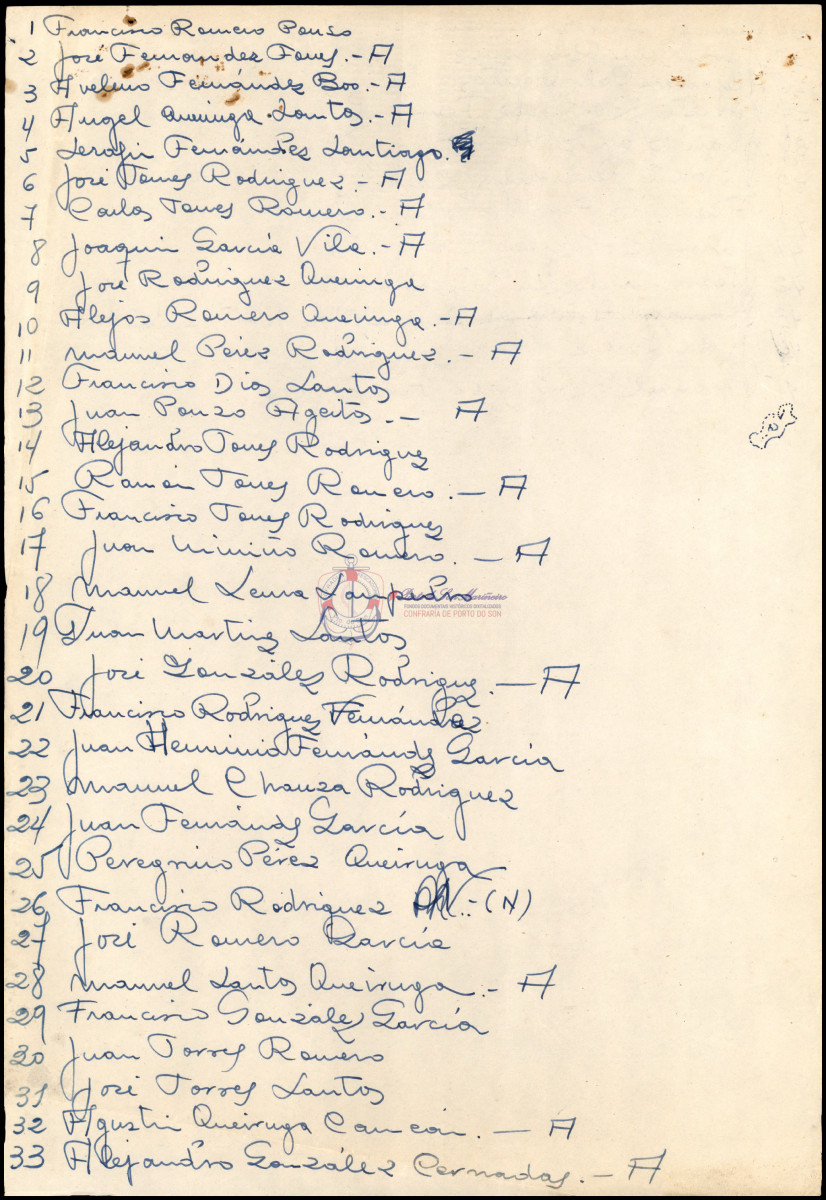 1 Francisco Romero Pouso
2 José Fernandez Torres.- A
3 Avelino Fernández Boo.- A
4 Angel Queiruga Santos.- A
5 Serafin Fernández Santiago.
6 José Torres Rodriguez.- A
7 Carlos Torres Romero.- A
8 Joaquin García Vila.- A
9 José Rodriguez Queiruga
10 Alejos Romero Queiruga.- A
11 Manuel Pérez Rodriguez.- A
12 Francisco Dios Santos
13 Juan Pouso Ageitos.- A
14 Alejandro Torres Rodriguez
15 Ramón Torres Romero.- A
16 Francisco Torres Rodriguez
17 Juan Miniño Romero.- A
18 Manuel Lema Sampedro
19 Juan Martinez Santos
20 José González Rodriguez.- A
21 Francisco Rodriguez Fernández
22 Juan Herminio Fernández García
23 Manuel Chouza Rodriguez
24 Juan Fernández García
25 Peregrino Pérez Queiruga
26 Francisco Rodriguez .-(N)
27 José Romero García
28 Manuel Santos Queiruga.- A
29 Francisco González García
30 Juan Torres Romero
31 José Torres Santos
32 Agustin Queiruga Cancón.- A
33 Alejandro González Cernadas.- A
FONDOS DOCUMENTAIS HISTÓRICOS DIXITALIZADOS
CONFRARÍA DE PORTO DO SON